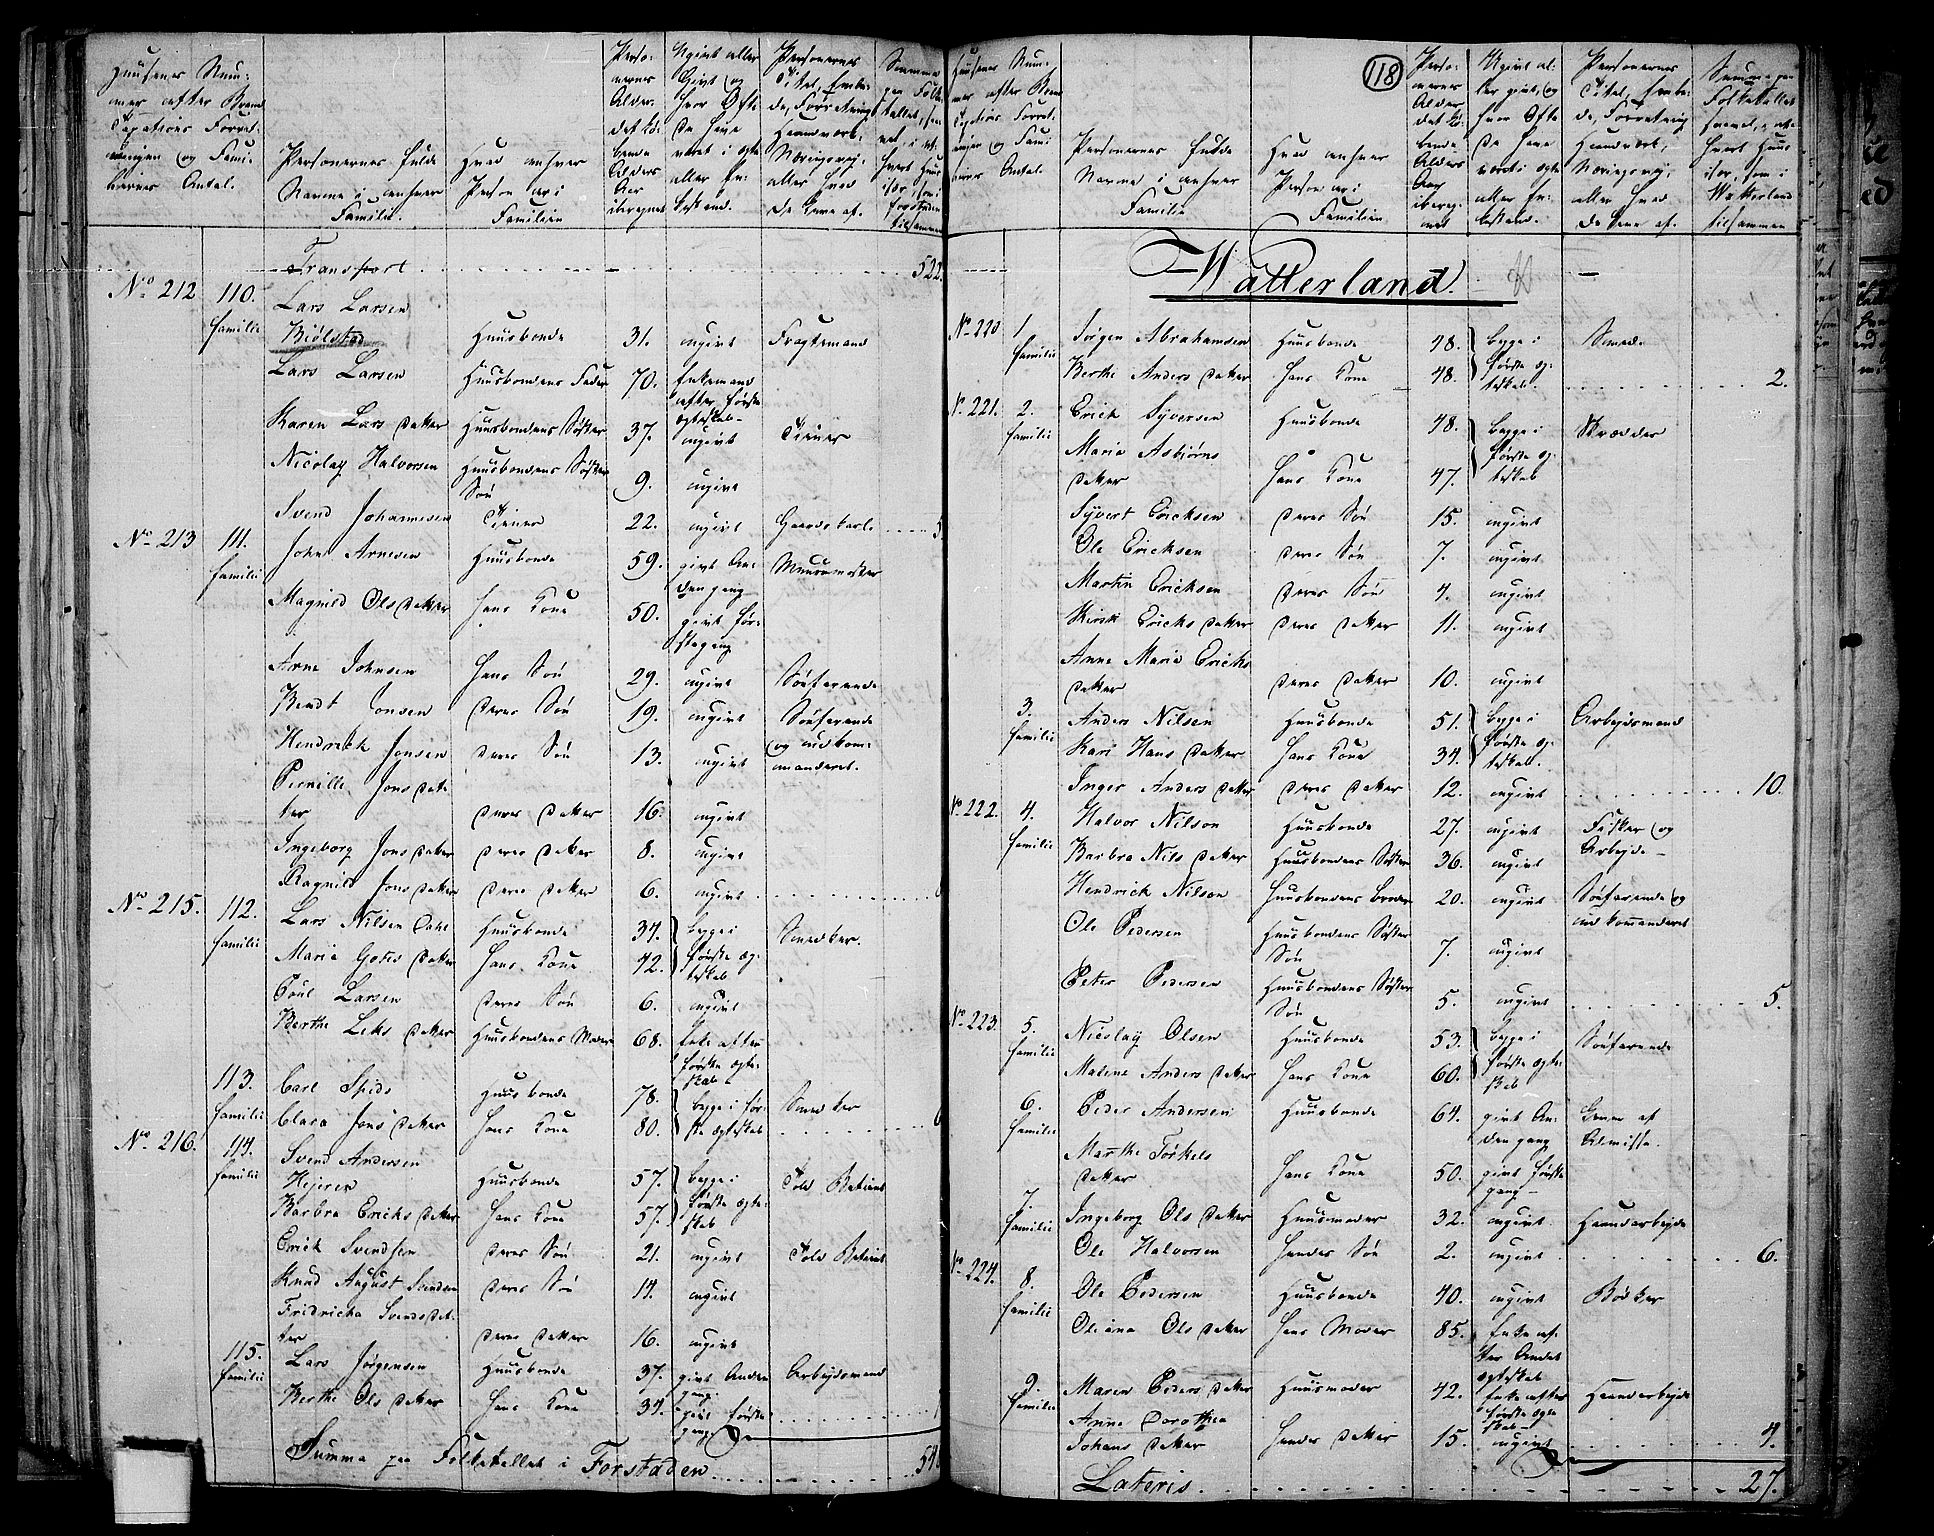 Huusenes Num-
mer efter Brand
Taxations Forret-
ningen og Fami-
liernes Antal.
Personernes fulde
Navne i enhver
Familie.
Hvad enhver
Person er i
Familien
Perso-
nernes
Alder
det lø-
bende
Alders
Aar
iberegnet
Ugivt eller
Givt og
hvor Ofte
De have
været i ægte
eller En-
kestand.
Personernes
Titel, Embe-
de, Forretning
Haandværk,
Næringsvej,
eller hvad
de leve af.
Transport 522.
No 212 110. familie Lars Larsen
Biölstad Huusbonde 31. ugivt Fragtemand
Lars Larsen Huusbondens Fader 70. Enkemand
efter første
ægteskab
Karen Lars Datter Huusbondens Søster 37. ugivt Tiener
Nicolay Halvorsen Huusbondens Søsters
Søn 9. ugivt
Svend Johannesen Tiener 22. ugivt Gaardskarl 5.
No 213 111. familie John Arnesen Huusbonde 59. givt An-
den gang Muurmester
Magnild Ols Datter Hans Kone 50. givt før-
ste gang
Arne Johnsen Hans Søn 29. ugivt Søefarende
Bendt Jonsen Deres Søn 19. ugivt Søefarende
og udkom-
manderet.
Hendrich Jonsen Deres Søn 13. ugivt
Pernille Jons Dat-
ter Deres Datter 16. ugivt
Ingeborg Jons Datter Deres Datter 8. ugivt
Ragnild Jons Datter Deres Datter 6. ugivt
No 215. 112. familie Lars Nilsen Dahl Huusbonde 34. begge i
første æg-
teskab Snedker.
Maria Datter Hans Kone 42.
Poul Larsen Deres Søn 6. ugivt
Berthe Datter Huusbondens Moder 68. Enke efter
første ægte-
skab
113. familie Carl Spids Huusbonde 78. begge i før-
ste ægteskab Snedker
Clara Jons Datter Hans Kone 80.
No 216. 114. familie Svend Andersen
Hejeren Huusbonde 57. begge i
første ægte-
skab Told Betient
Barbra Erichs Datter Hans Kone 57.
Erich Svendsen Deres Søn 21. ugivt Told Betient
Knud August Svendsen Deres Søn 14. ugivt
Fridricha Svends Dat-
ter Deres Datter 16. ugivt
115. familie Lars Jørgensen Huusbonde 37. givt Anden
gang Arbejdsmand
Berthe Ols Datter Hans Kone 34. givt første
gang
Summa paa Folketallet i Forstaden
118
Huusenes Num-
mer efter Brand
Personernes fulde
Navne i enhver
Familie
Hvad enhver
Person er i
Familien
Perso-
nernes
Alder
det lø-
bende
Alders
Aar
ibereg-
net
Ugivt el-
ler givt, og
hvor Ofte
De have
været i ægte
eller En-
kestand.
Personernes
Titel, Embe-
de, Forretning
Haandværk,
Næringsvej,
eller hvad
de leve af.
Summa paa
Folketallet
hvert Huus
især, som i
Watterland
tilsammen
Watterland.
No 220 1. familie Jørgen Abrahamsen Huusbonde 48. begge i
første æg-
teskab. Smed
Berthe Anders Datter Hans Kone 48. 2.
No 221. 2. familie Erich Syversen Huusbonde 48. begge i
første æg-
teskab Skrædder
Maria Asbiørns
Datter Hans Kone 47.
Syvert Ericksen Deres Søn 15. ugivt
Ole Ericksen Deres Søn 7. ugivt
Martin Ericksen Deres Søn 4. ugivt
Kirsti Erichs Datter Deres Datter 11. ugivt
Anne Maria Erichs
Datter Deres Datter 10. ugivt
3. familie Anders Nilsen Huusbonde 51. begge i
første æg-
teskab. Arbejdsmand
Kari Hans Datter Hans Kone 34.
Inger Anders Datter Deres Datter 12. ugivt 10.
No 222. 4. familie Halvor Nilson Huusbonde 27. ugivt Fisker og
Arbejde
Barbra Nils Datter Huusbondens Søster 36. ugivt
Hendrich Nilson Huusbondens Broder 20. ugivt Søefarende og
udkommanderet
Ole Pedersen Huusbondens Søster
Søn 7. ugivt
Peter Pedersen Huusbondens Søster
Søn 5. ugivt 5.
No 223. 5. familie Nicolay Olsen Huusbonde 53. begge i
første ægte-
skab Søefarende
Malene Anders Datter Hans Kone 60.
6. familie Peder Andersen Huusbonde 64. givt An-
den gang Lever af
Almisse.
Marthe Torkels
Datter Hans Kone 50. givt første
gang
7. familie Ingeborg Ols Datter Huusmoder 32. ugivt Haandarbejde
Ole Halvorsen Hendes Søn 2. ugivt 6.
No 224. 8. familie Ole Pedersen Huusbonde 40. ugivt Bødker
Oliana Ols Datter Hans Moder 85. Enke ef-
ter Andet
ægteskab
9. familie Maren Peders Datter Huusmoder 42. Enke efter
første ægte-
skab Haandarbejde
Anne Dorothea
Johans Datter Hendes Datter 15. ugivt 4.
Lateris 27.